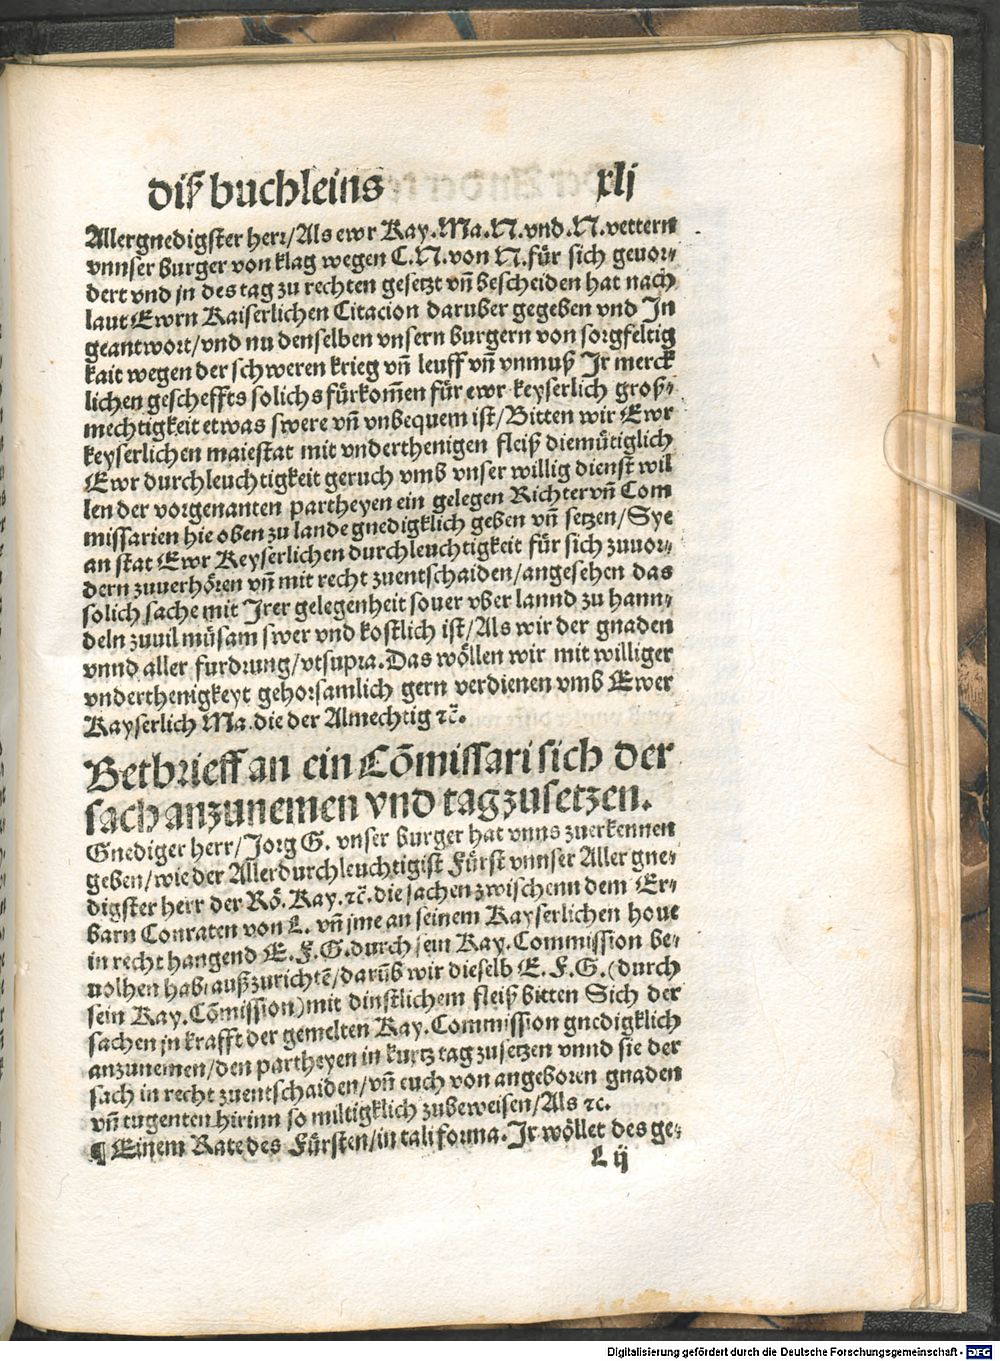 diß buchleins xlj
Allergnedigster herr/Als ewr Kay.Ma.N.vnd.N.vettern
vnnser burger von klag wegen C.N.von N.für sich geuor⸗
dert vnd jn des tag zu rechten gesetzt vñ bescheiden hat nach
laut Ewrn Kaiserlichen Citacion daruber gegeben vnd In
geantwort/vnd nu denselben vnsern burgern von sorgfeltig
kait wegen der schweren krieg vñ leuff vñ vnmuß Jr merck
lichen gescheffts solichs fürkom̃en für ewr keyserlich groß⸗
mechtigkeit etwas swere vñ vnbequem ist/Bitten wir Ewr
keyserlichen maiestat mit vnderthenigen fleiß diemütiglich
Ewr durchleuchtigkeit geruch vmb vnser willig dienst wil
len der vorgenanten partheyen ein gelegen Richter vñ Com
missarien hie oben zu lande gnedigklich geben vñ setzen/Sye
an stat Ewr Keyserlichen durchleuchtigkeit für sich zuuor⸗
dern zuuerhören vñ mit recht zuentschaiden/angesehen das
solich sache mit Jrer gelegenheit souer vber lannd zu hann⸗
deln zuuil müsam swer vnd kostlich ist/Als wir der gnaden
vnnd aller furdrung/vtsupra.Das wöllen wir mit williger
vnderthenigkeyt gehorsamlich gern verdienen vmb Ewer
Kayserlich Ma.die der Almechtig ⁊c̃.
Betbrieff an ein Cõmissari sich der
sach anzunemen vnd tag zusetzen.
Gnediger herr/Jorg G. vnser burger hat vnns zuerkennen
geben/wie der Allerdurchleuchtigist Fürst vnnser Aller gne⸗
digster herr der Rö.Kay.⁊c̃.die sachen zwischenn dem Er⸗
barn Conraten von L. vñ jme an seinem Kayserlichen houe
in recht hangend E.F.G.durch sein Kay.Commission be⸗
uolhen hab/außzurichtẽ/darũb wir dieselb E.F.G.(durch
sein Kay.Cõmission)mit dinstlichem fleiß bitten Sich der
sachen jn krafft der gemelten Kay.Commission gnedigklich
anzunemen/den partheyen in kurtz tag zusetzen vnnd sie der
sach in recht zuentschaiden/vñ euch von angeboren gnaden
vñ tugenten hirinn so miltigklich zubeweisen/Als ⁊c.
¶ Einem Rate des Fürsten/in tali forma.Jr wöllet des ge⸗
L ij
Digitalisierung gefördert durch die Deutsche Forschungsgemeinschaft - DFG